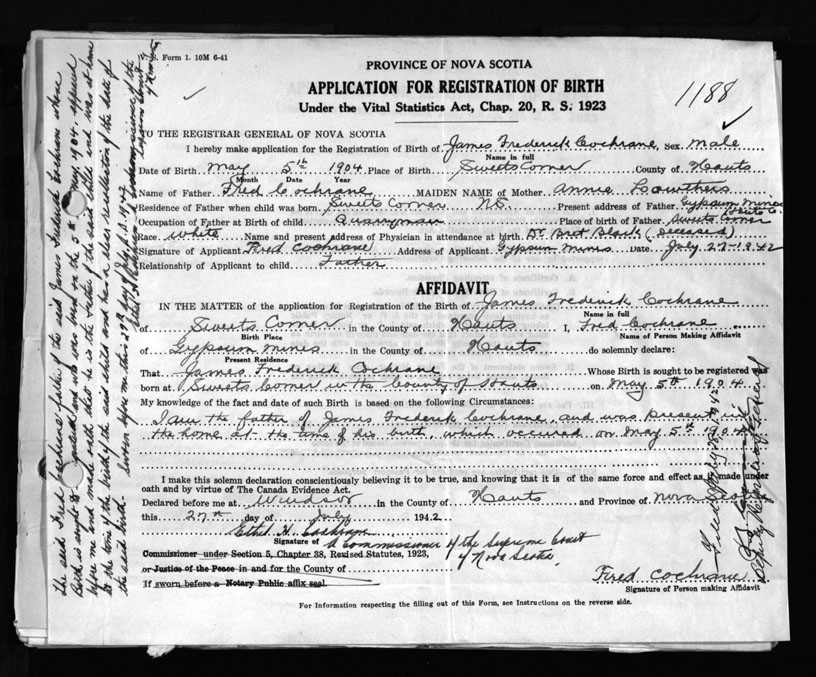 S. Form 1. 10M 6-41
PROVINCE OF NOVA SCOTIA
APPLICATION FOR REGISTRATION OF BIRTH
Under the Vital Statistics Act, Chap. 20, R. S. 1923
1188
TO THE REGISTRAR GENERAL OF NOVA SCOTIA
I hereby make application for the Registration of Birth of James Frederick Cochrane, Sex Male
Name in full
Date of Birth May 5th 1904 Place of Birth Sweets Corner County of Hants
Month Date Year
Name of Father Fred Cochrane MAIDEN NAME of Mother Annie Lowthers
Residence of Father when child was born Sweets Corner N.S. Present address of Father Gypsum Mines
Hants Co.
Occupation of Father at Birth of child Quarryman Place of birth of Father Sweets Corner
Race White Name and present address of Physician in attendance at birth Dr Bret Black (Deceased)
Signature of Applicant Fred Cochrane Address of Applicant Gypsum Mines Date July 27-1942
Relationship of Applicant to child Father
AFFIDAVIT
IN THE MATTER of the application for Registration of the Birth of James Frederick Cochrane
Name in full
of Sweets Corner in the County of Hants I, Fred Cochrane
Birth Place Name of Person Making Affidavit
of Gypsum Mines in the County of Hants do solemnly declare:
Present Residence
That James Frederick Cochrane Whose Birth is sought to be registered was
born at Sweets Corner in the County of Hants on May 5th 1904
My knowledge of the fact and date of such Birth is based on the following Circumstances:
I am the father of James Frederick Cochrane, and was present in
the home at the time of his birth, which occured on May 5th 1904
I make this solemn declaration conscientiously believing it to be true, and knowing that it is of the same force and effect as if made under
oath and by virtue of The Canada Evidence Act.
Declared before me at Windsor in the County of Hants and Province of Nova Scotia
this 27th day of July 1942
Ethel H. Cochrane
Signature of A Commissioner of the Supreme Court
of Nova Scotia
Commissioner under Section 5, Chapter 38, Revised Statutes, 1923,
or Justice of the Peace in and for the County of
If sworn before a Notary Public affix seal.
Fred Cochrane
Signature of Person making Affidavit
For Information respecting the filling out of this Form, see Instructions on the reverse side.
The said Fred Cochrane father of the said James Frederick Cochrane whose
Birth is sought to be registered and who was born on the 5th May 1904 appeared
before me and made oath that he is the father of the said child and was at home
at the time of the birth of the said child and has a clear recollection of the date of
the said birth.
Sworn before me this 29th day of July A.D. 1942